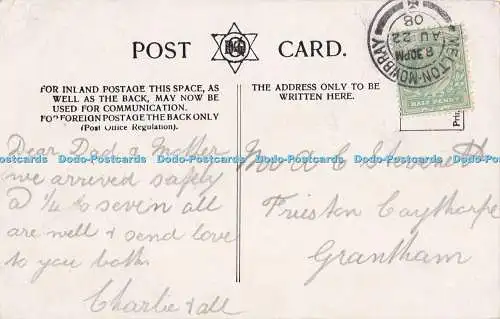 POST CARD.
FOR INLAND POSTAGE THIS SPACE, AS
WELL AS THE BACK, MAY NOW BE
USED FOR COMMUNICATION.
FOR FOREIGN POSTAGE THE BACK ONLY
(Post Office Regulation).
THE ADDRESS ONLY TO BE
WRITTEN HERE.
MELTON-MOWBRAY
8.30PM
AU 22
08
HALF PENNY
Dear Dad & Mother
we arrived safely
@ 1/4 to seven all
are well & send love
to you both
Charlie & all
Mr A C
Frieston Caythorpe
Grantham
Dodo-Postcards Dodo-Postcards Dodo-Postcards Dodo-Postcards Dodo-Postcards Dodo-Postcards